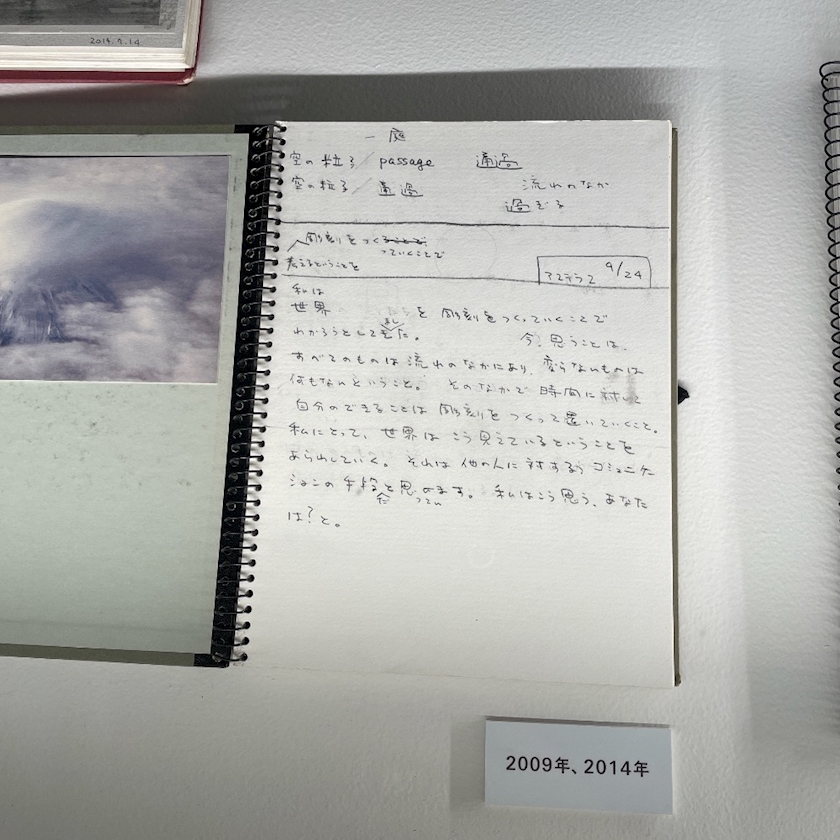 2014.9.14
一庭
空の粒子／passage　通過
空の粒子／通過　流れのなか
過ぎる
彫刻をつくることで
っていくことで
考えるということを
アステラス 9/24
私は
世界　を 彫刻をつくっていくことで
わかろうとしてました。　今、思うことは、
すべてのものは流れのなかにあり、変らないものは
何もないということ。 そのなかで 時間に対して
自分のできることは 彫刻を つくって置いていくこと。
私にとって、世界は こう見えているということを
あらわしていく。 それは 他の人に対するコミュニケ
ションの手段と思います。 私はこう思う、あなた
は？と。
2009年、2014年